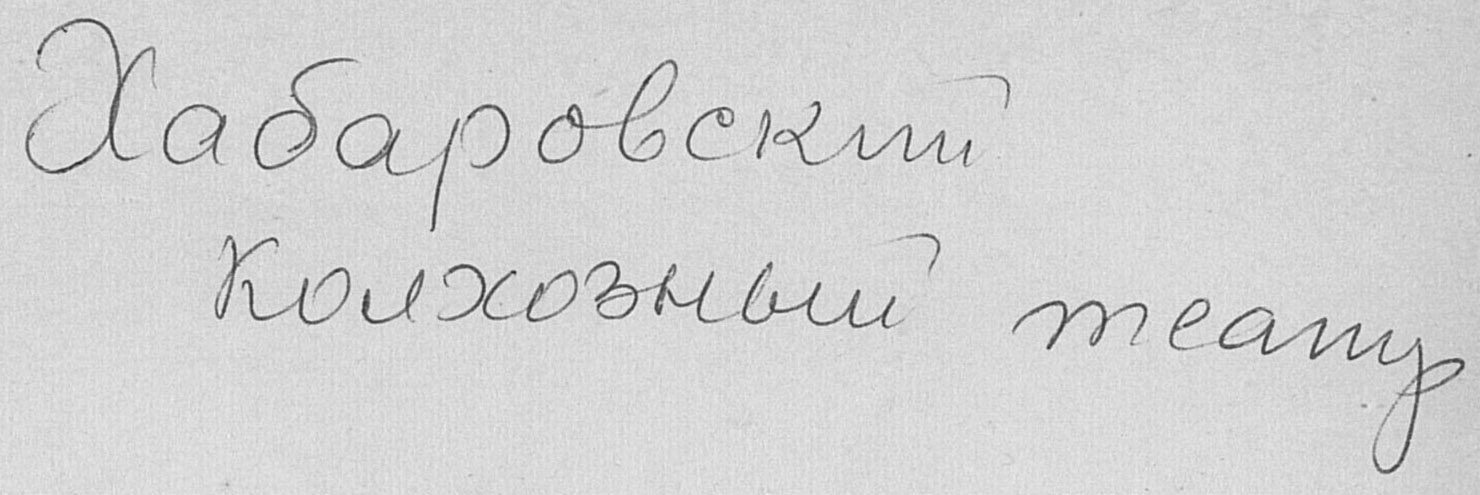 Хабаровский
колхозный театр